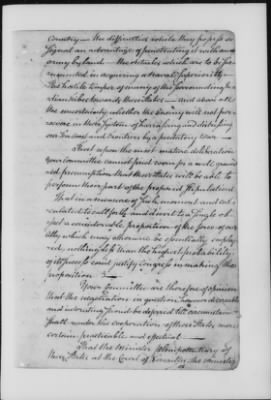 Country — the difficulties while they possess so
signal an advantage of penetrating it with an
army by land — the obstacles which are to be sur
mounted in acquiring a naval superiority —
the hostile temper of many of the surrounding In
dian tribes towards these States — and above all
the uncertainty whether the Enemy will not per
severe in their system of harassing and distressing
our Sea Coast and frontiers by a predatory war —
That upon the most mature deliberation
your Committee cannot find room for a well ground
ed presumption that these States will be able to
perform their part of the proposed Stipulations
That in a measure of such moment and cal
culated to call forth, and direct to a single ob
ject a considerable proportion of the force of our
Ally, which may otherwise be essentially employ
ed, nothing less than the highest probability
of its success could justify Congress in making the
proposition
Your Committee are therefore of opinion
that the negotiation in question however desireable
and interesting should be deferred till circumstan
ces shall render the cooperation of these States more
certain practicable and effectual
That the Minister plenipotentiary of
these States at the Court of Versailles, the Minister